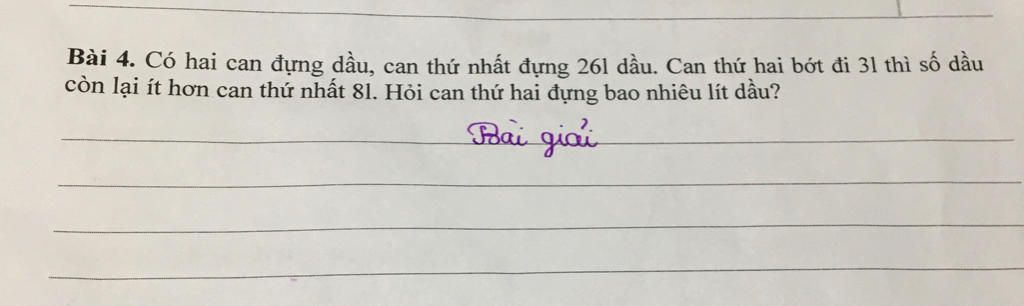 Bài 4. Có hai can đựng dầu, can thứ nhất đựng 26l dầu. Can thứ hai bớt đi 3l thì số dầu
còn lại ít hơn can thứ nhất 8l. Hỏi can thứ hai đựng bao nhiêu lít dầu?
Bài giải